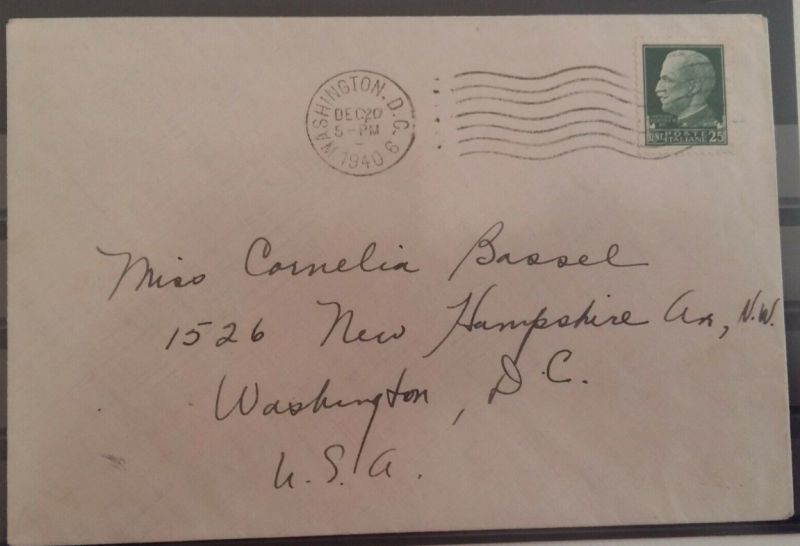 WASHINGTON, D.C.
DEC 20
5-PM
1940
6
POSTE
CENT. ITALIANE 25
Miss Cornelia Bassel
1526 New Hampshire Av, N.W.
Washington, D.C.
U.S.A.